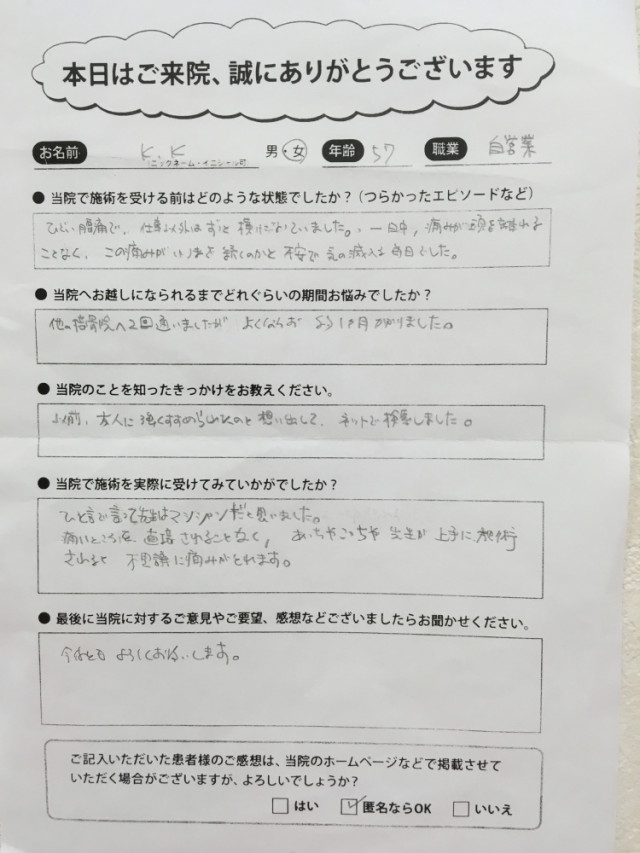 本日はご来院、誠にありがとうございます
お名前 K.K 男・女 年齢 57 職業 自営業
ニックネーム・イニシャル可
● 当院で施術を受ける前はどのような状態でしたか？（つらかったエピソードなど）
ひどい腰痛で、仕事以外はずっと横になっていました。一日中、痛みが頭を離れる
ことなく、この痛みがいつまで続くのかと不安で気の滅入る毎日でした。
● 当院へお越しになられるまでどれぐらいの期間お悩みでしたか？
他の接骨院へ2回通いましたが よくならず 1か月かかりました。
● 当院のことを知ったきっかけをお教えください。
以前、友人に強くすすめられたのを想い出して、ネットで検索しました。
● 当院で施術を実際に受けてみていかがでしたか？
ひと言で言って先生はマジシャンだと思いました。
痛いところを直接されることなく、あっちやこっちや先生が上手に施術
されると 不思議に痛みがとれます。
● 最後に当院に対するご意見やご要望、感想などございましたらお聞かせください。
今後とも よろしくお願いします。
ご記入いただいた患者様のご感想は、当院のホームページなどで掲載させて
いただく場合がございますが、よろしいでしょうか？
□ はい ☑ 匿名ならOK □ いいえ